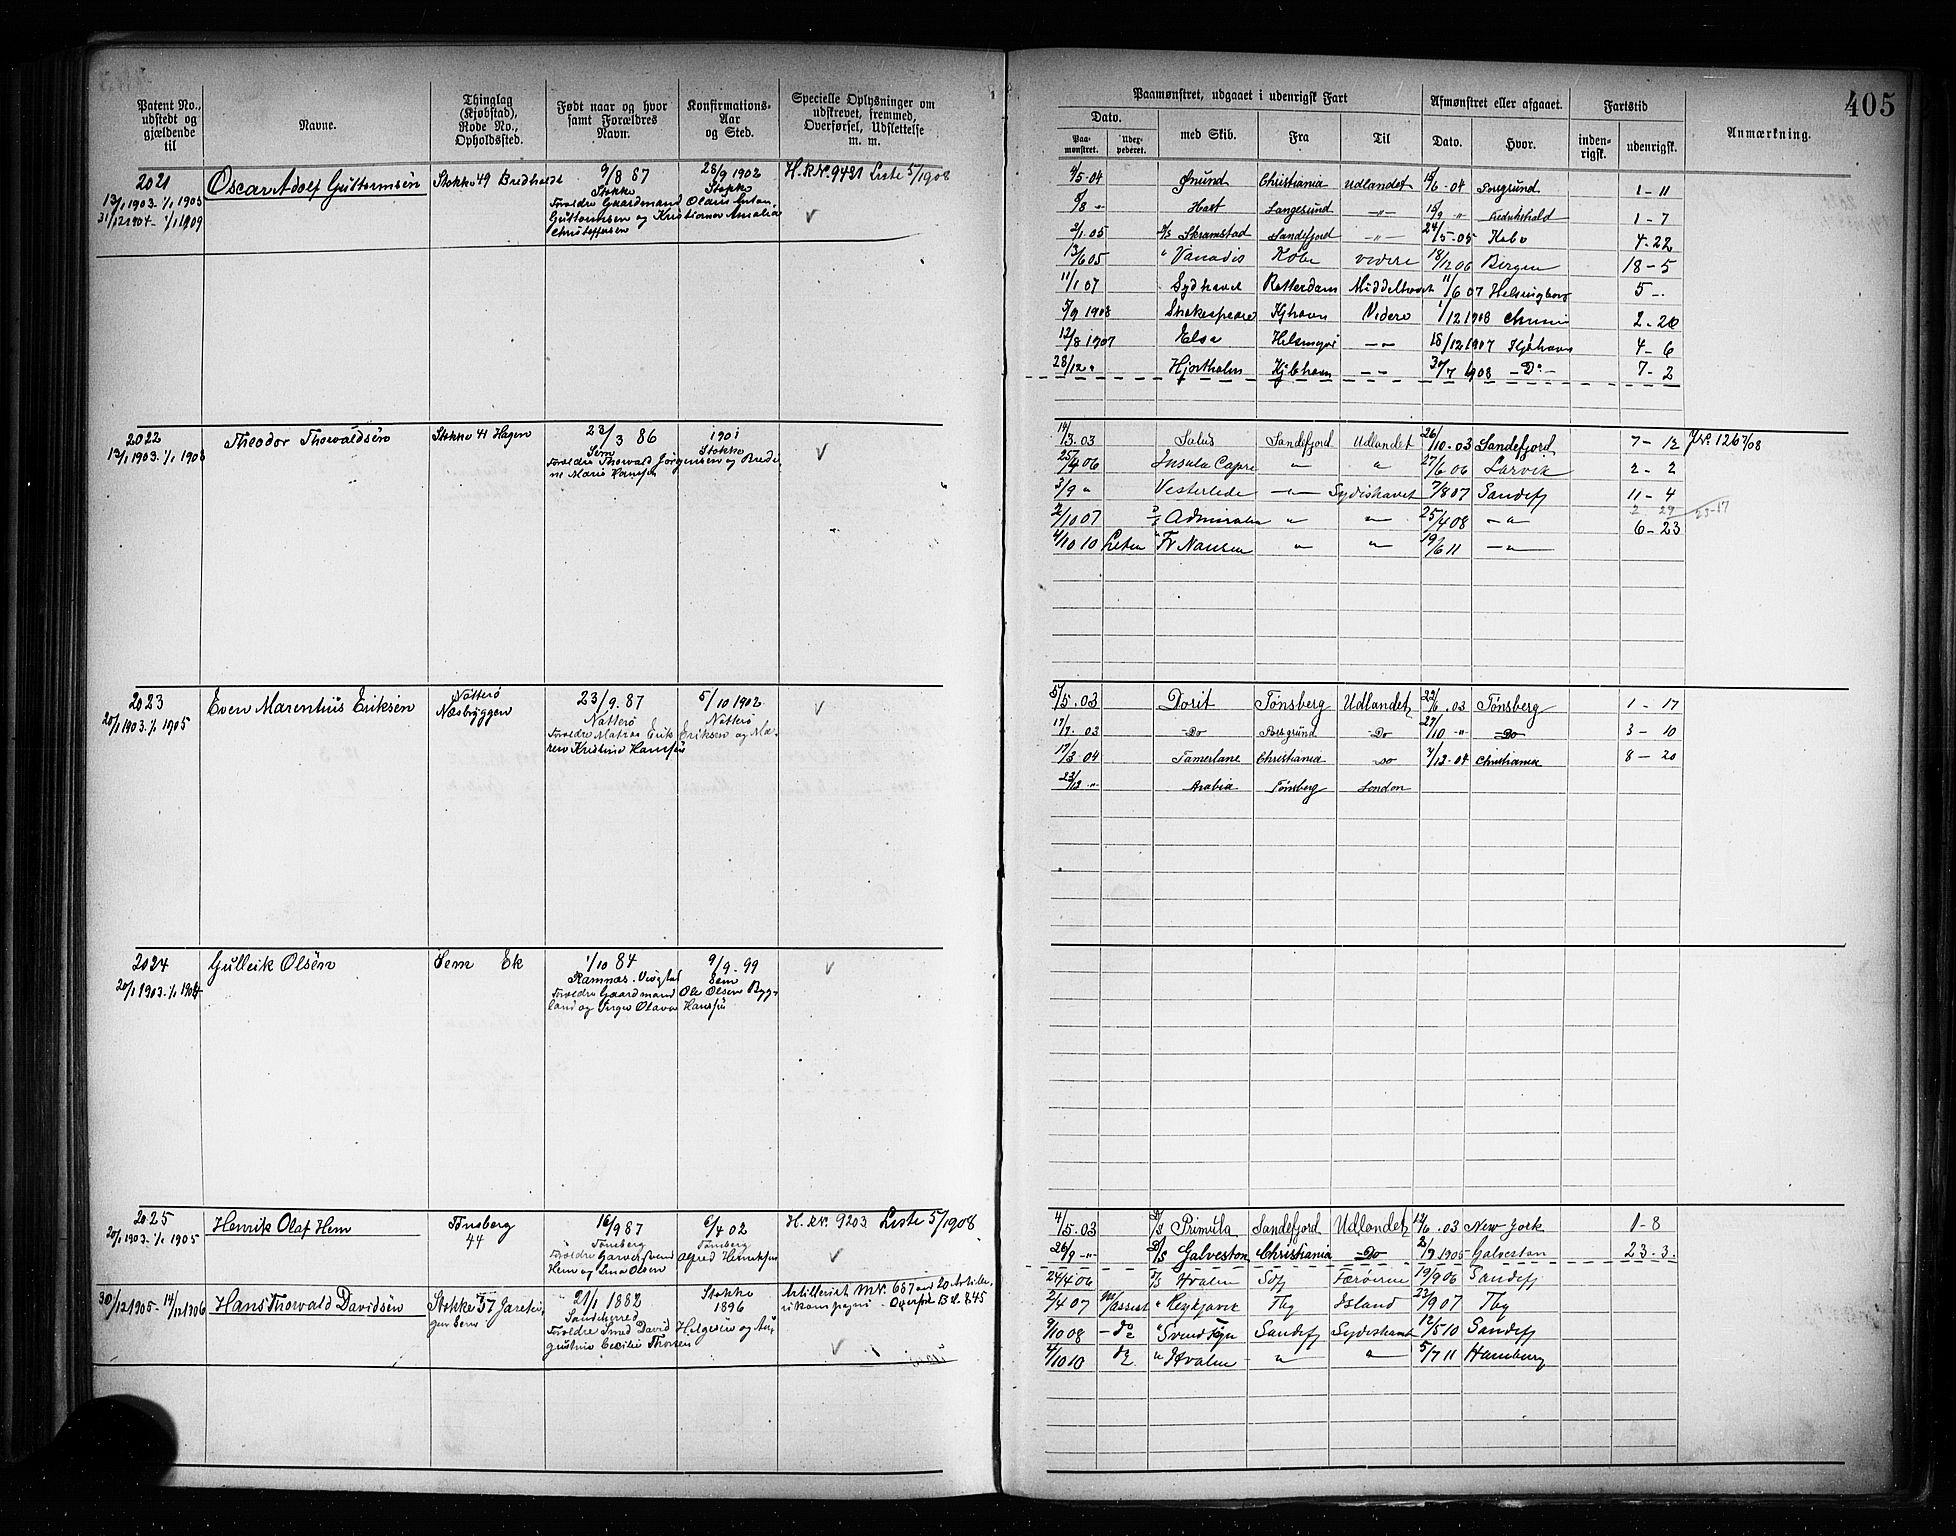 405
Patent No., udstedt og gjældende til
Navne.
Thinglag (Kjøbstad), Rode No., Opholdssted.
Født naar og hvor samt Forældres Navn.
Konfirmations-Aar og Sted.
Specielle Oplysninger om udskrevet, fremmed, Overførsel, Udslettelse m. m.
Paamønstret, udgaaet i udenrigsk Fart
Afmønstret eller afgaaet.
Fartstid
Anmærkning.
Dato.
Paamønstret.
med Skib.
Fra
Til
Dato.
Hvor.
indenrigsk.
udenrigsk.
2021
13/1 1903 - 1/1 1905
31/12 1904 - 1/1 1909
Oscar Adolf Guttormsen
Stokke 49
9/8 87
Stokke
Forældre Gaardmand Olaus Anton
Guttormsen og Kristiane Amalia
Christoffersen
28/9 1902
Stokke
H. RN. 9421 Liste 5/1908
9/5-04 Ønund Christiania Udlandet 15/6-04 Porsgrund 1-11
8/8 " Langesund -"- 15/9 " Fredrikshald 1-7
2/1.05 D/S Skramstad Sandefjord -"- 24/5-05 Kobe 4-22
13/6 05 " Vanadis Kobe videre 18/12 06 Bergen 18-5
11/1 07 Sydhavet Rotterdam 11/6 07 Helsingborg 5-.
5/9 1908 Shakespeare Kjhavn Videre 1/12 1908 2-26
12/8 1907 Elsa Helsingør -"- 18/12 1907 Kjøhavn 4-6
28/12 " Hjortholm Kjbhavn -"- 30/7 1908 -Do- 7-2
2022
13/1 1903. 1/1 1908
Theodor Thorvaldsen
Stokke 41 Hagen
23/3 86
Sem
Forældre Thorvald Jørgensen og Bredi-
ne Marie Hansen
1901
Stokke
14/3.03 Salus Sandefjord Udlandet 26/10-03 Sandefjord 7-12
25/4 06 Insula Capri " " 27/6 06 Larvik 2-2
3/9 " Vesterlide -"- Sydishavet 7/8 07 Sandefj 11-4
2/10 07 D/S Admiralen " " 25/4 08 -"- 6-23
4/10 10 " Fr Nansen " " 19/6 11 -"-
2023
20/1 1903. 1/1 1905
Even Marenthius Eriksen
Nøtterø
Næsbryggen
23/9.87
Nøtterø
Forældre Matros Erik Eriksen og Ma-
ren Kristine Hansen
5/10 1902
Nøtterø
5/5.03 Dorit Tønsberg Udlandet 22/6.03 Tønsberg 1-17
17/7.03 -Do Porsgrund -Do 27/10 -"- -Do 3-10
17/3.04 Tamerlane Christiania -Do 7/12-04 Christiania 8-20
23/12 " Arabia Tønsberg London
2024
20/1 1903. 1/1 1904
Gulleik Olsen
Sem Ek
1/10 84
Ramnæs
Forældre Gaardmand Ole Olsen Byg-
land og Inger Olava Hansen
9/9-99
Sem
2025
20/1 1903. 1/1 1905
Henrik Olaf Hem
Tønsberg
44
16/9 87
Tønsberg
Forældre Garversvend Alfred Henriksen
Hem og Lina Olsen
6/4 02
Tønsberg
H. RN. 9203 Liste 5/1908
4/5.03 D/S Primula Sandefjord Udlandet 12/6.03 New York 1-8
26/9 -"- D/S Galveston Christiania -Do 2/9 1905 Galveston 23-3.
30/12 1905 - 14/12 1906
Hans Thorvald Davidsen
Stokke 37
21/1 1882
Sandeherred
Forældre Smed David Helgesen og Au-
gustine Cecilie Thorsen
Stokke
1896
Artillerist MN. 657
24/4 06 D/S Hvalen Sdfj Færøerne 19/9 06 Sandefj
2/4 07 m/assist " Reykjavik Tbg Island 23/9 07 Tbg
9/10 08 -do " Svend Foyn Sandefj Sydishavet 12/5 10 Sandefj
4/10 10 " Hvalen " " 5/7 11 Hamburg